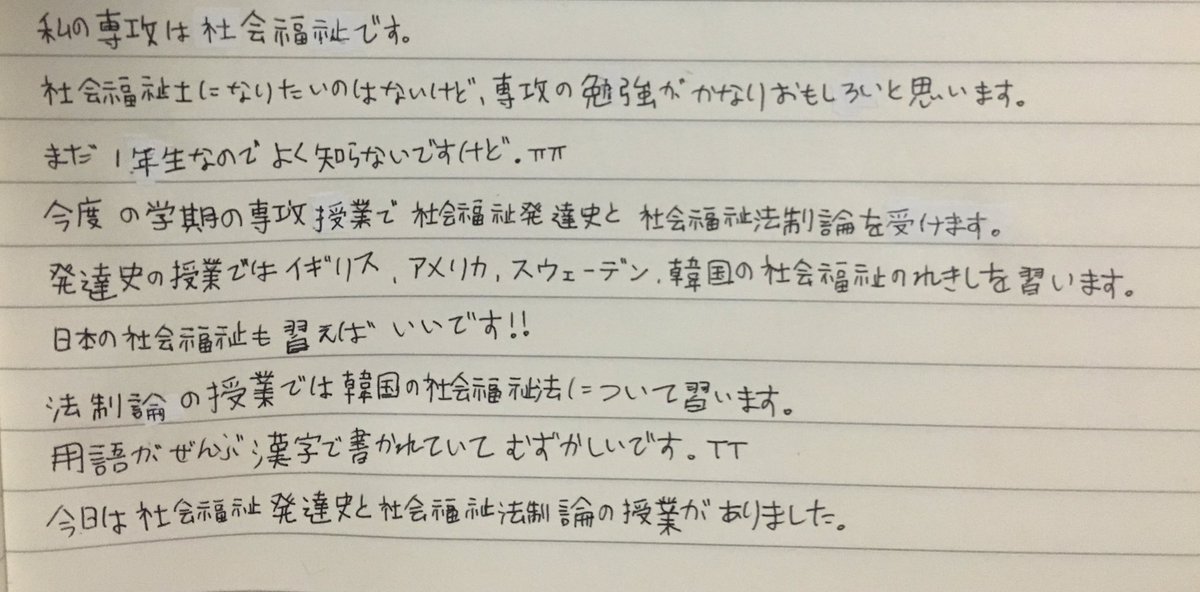 私の専攻は社会福祉です。
社会福祉士になりたいのはないけど、専攻の勉強がかなりおもしろいと思います。
まだ1年生なのでよく知らないですけど.ㅠㅠ
今度の学期の専攻授業で社会福祉発達史と社会福祉法制論を受けます。
発達史の授業ではイギリス、アメリカ、スウェーデン、韓国の社会福祉のれきしを習います。
日本の社会福祉も習えばいいです!!
法制論の授業では韓国の社会福祉法について習います。
用語がぜんぶ漢字で書かれていてむずかしいです。ㅜㅜ
今日は社会福祉発達史と社会福祉法制論の授業がありました。